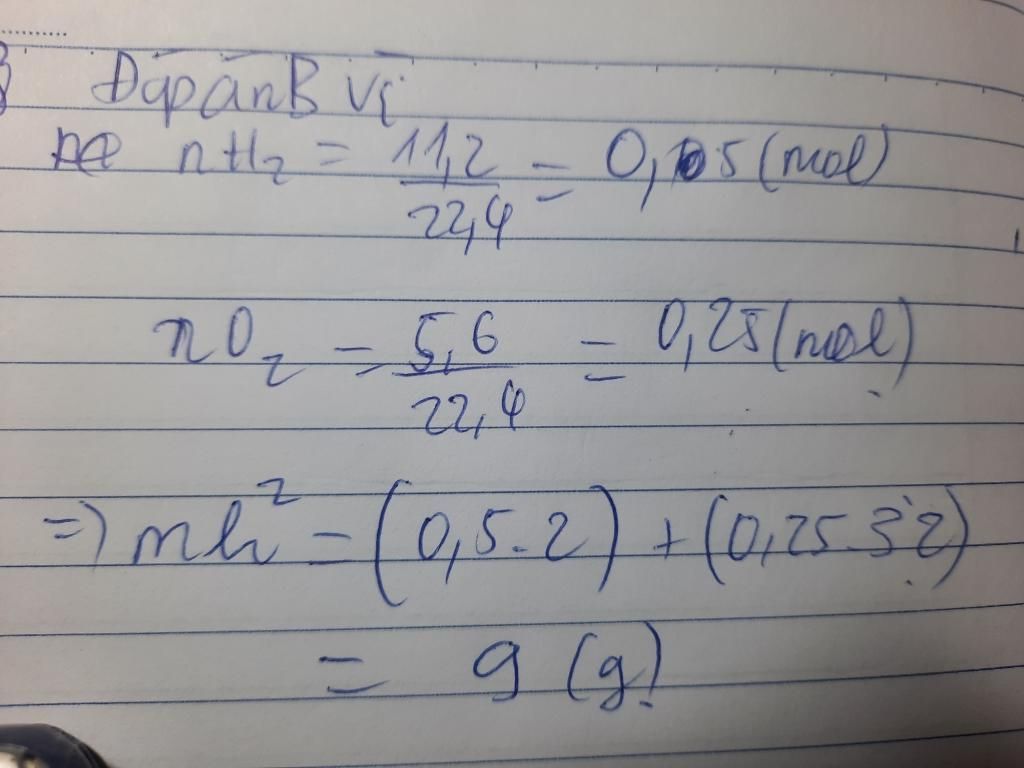 Đáp án B vì
nH2 = 11,2 / 22,4 = 0,5 (mol)
nO2 = 5,6 / 22,4 = 0,25 (mol)
=) mh² = (0,5.2) + (0,25.32)
= 9 (g)